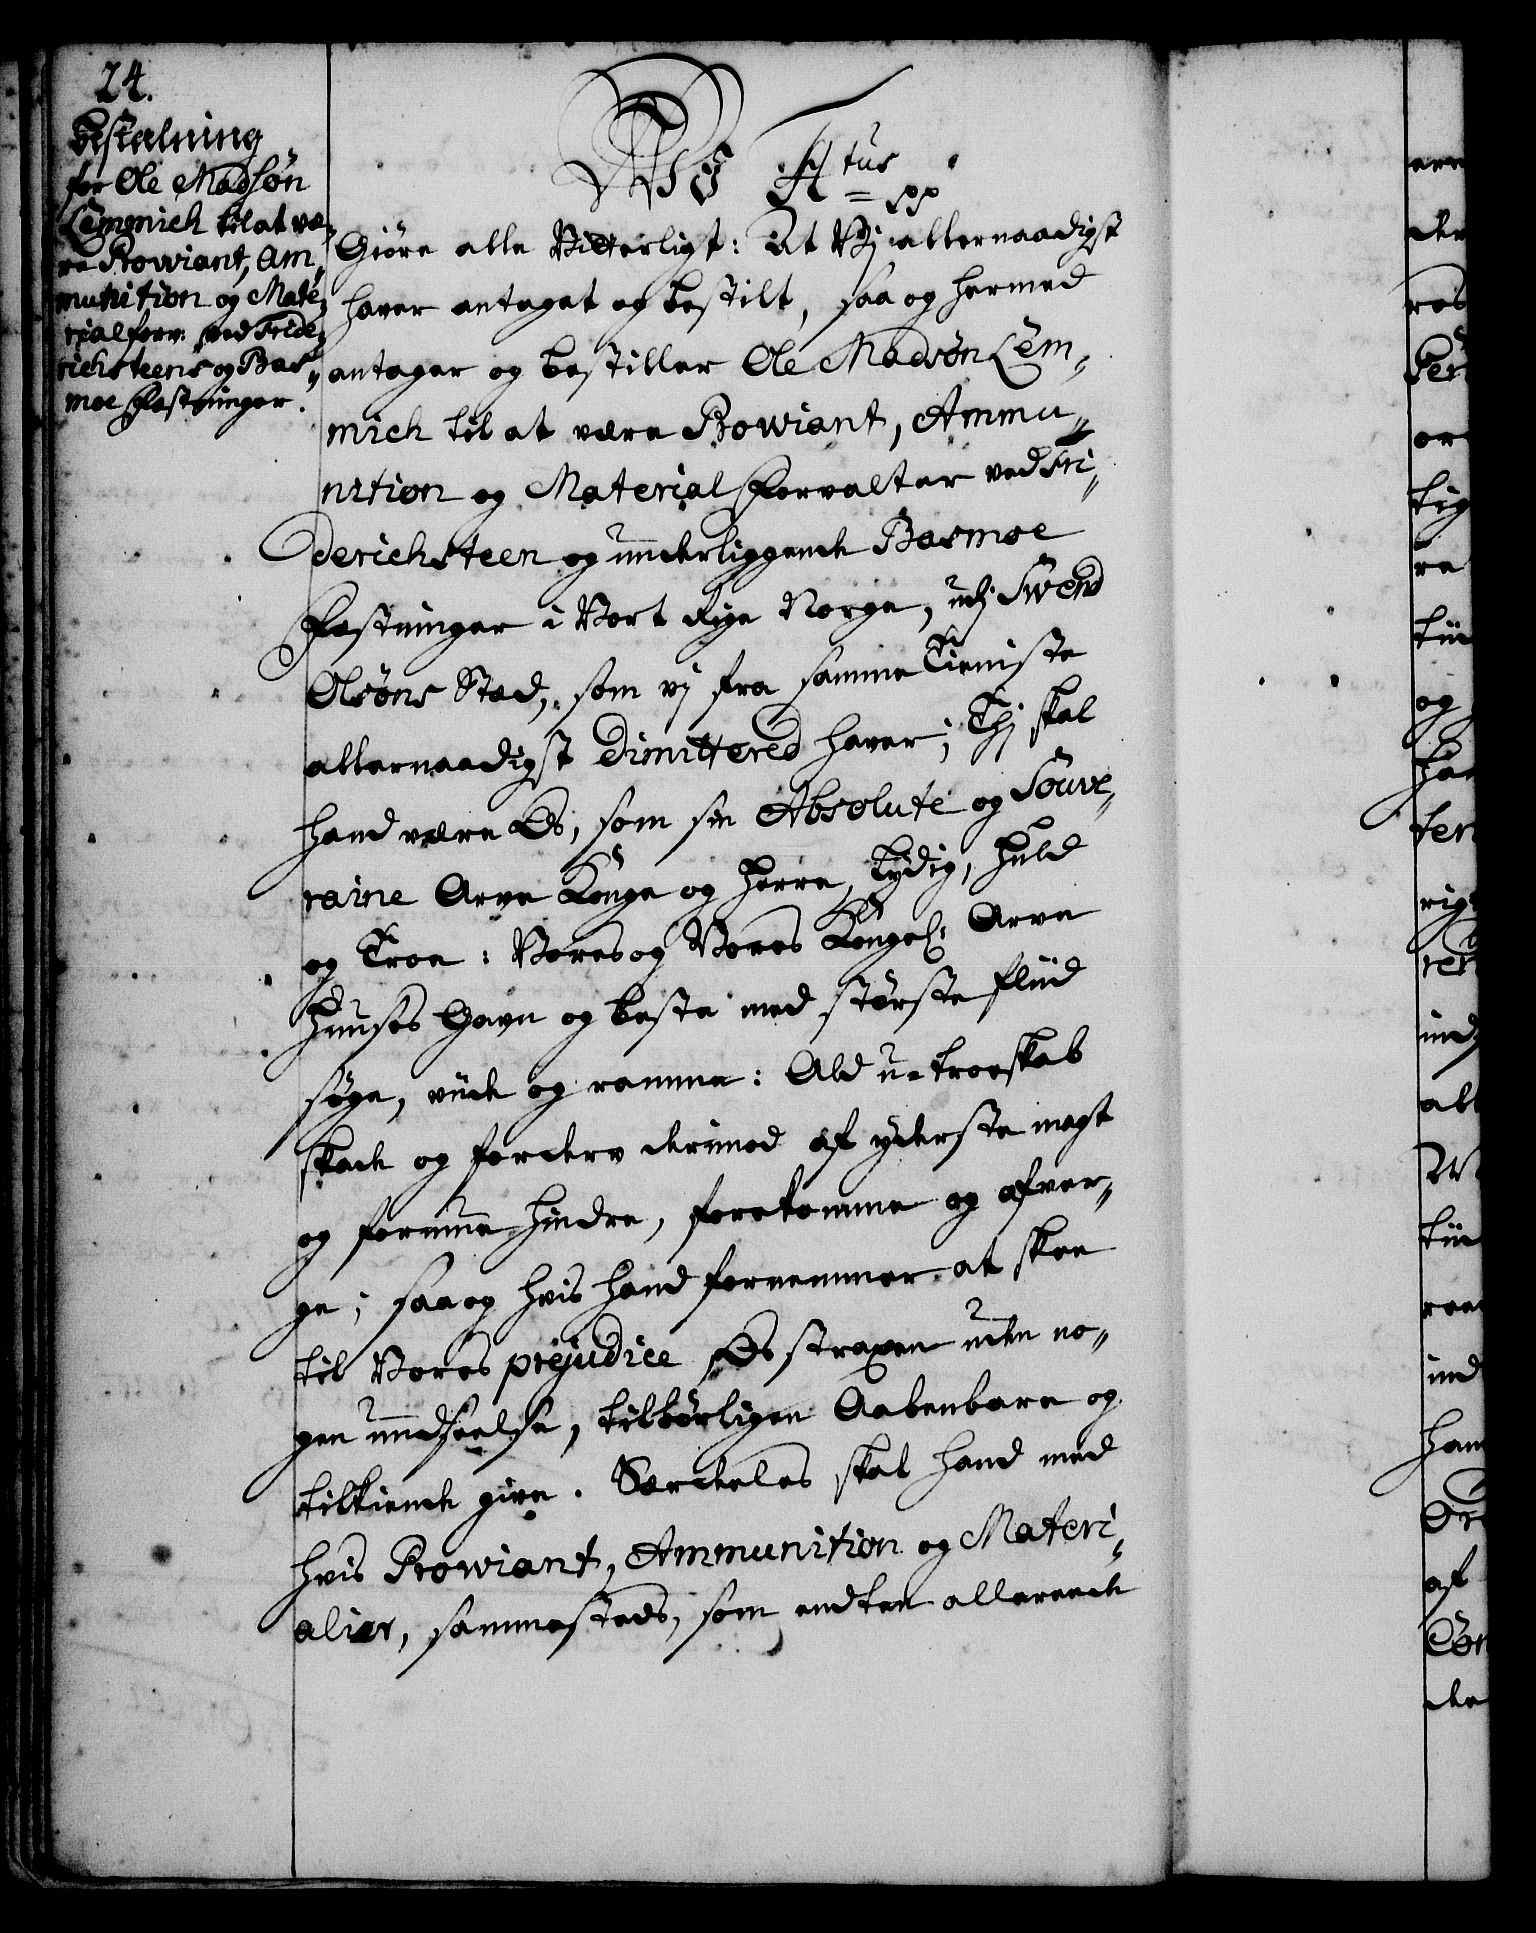 24.
Bestalning
for Ole Madsøn
Lemmich til at væ,,
re Prowiant, Am,,
munition og Mate,,
rialforv: ved Fride,,
richsteens og Bas,,
moe Fæstninger.
F 4tus
Giøre alle Vitterligt: At Vj allernaadigst
haver antaget og bestilt, saa og hermed
antager og bestiller Ole Madsøn Lem,,
mich til at være Prowiant, Ammu,,
nition og Material Forvalter ved Fri,,
derichsteen og underliggende Basmoe
Fæstninger i Vort Rige Norge, udj Swend
Olsøns Sted, som vj fra samme Tieniste
allernaadigst dimittered haver; Thj skal
hand være Os, som sin Absolute og Souve,,
raine Arve Konge og Herre, Lydig, huld
og Troe: Vores og Vores Kongel: Arve
Huuses Gavn og beste med største fliid
søge, viide og ramme: Ald u-troeskab
skade og forderv derimod af yderste magt
og formue hindre, forekomme og afver,,
ge; saa og hvis hand fornemmer at skee
til Vores prejudice Os straxen uden no,,
gen undseelse, tilbørligen Aabenbare og
tilkiende give. Særdeles skal hand med
hvis Prowiant, Ammunition og Materi,,
alier, sammesteds, som endten allereede